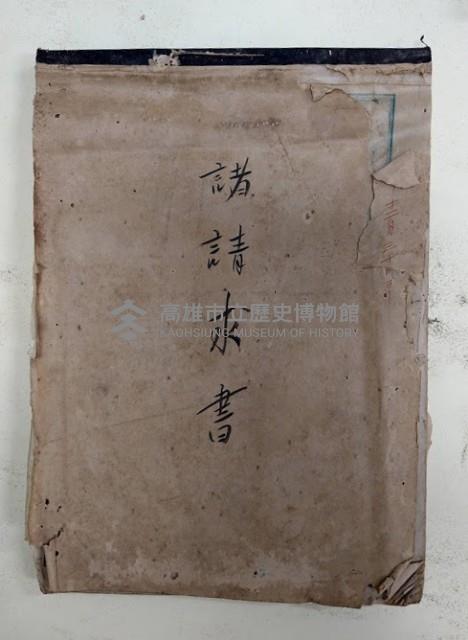 諸請求書
高雄市立歷史博物館
KAOHSIUNG MUSEUM OF HISTORY